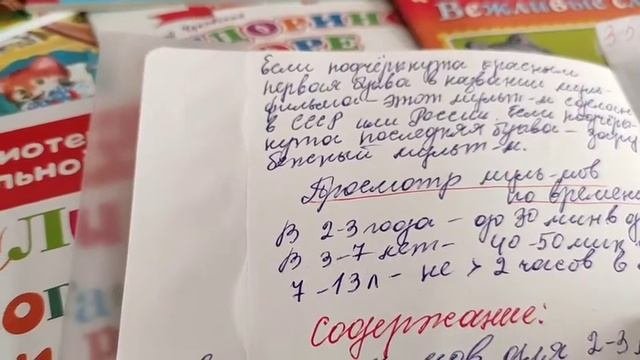 Вежливые с
Если подчёркнута красным
первая буква в названии муль-
фильма – этот мульт-м сделан
в СССР или России. Если подчёрк-
нута последняя буква – зару
бежный мульт-м.
Просмотр муль-мов
по времени
В 2-3 года – до 30 мин в д
В 3-7 лет – 40-50 мин
7-13 л – не > 2 часов в
Содержание:
мов для 2-3
лиоте
льной